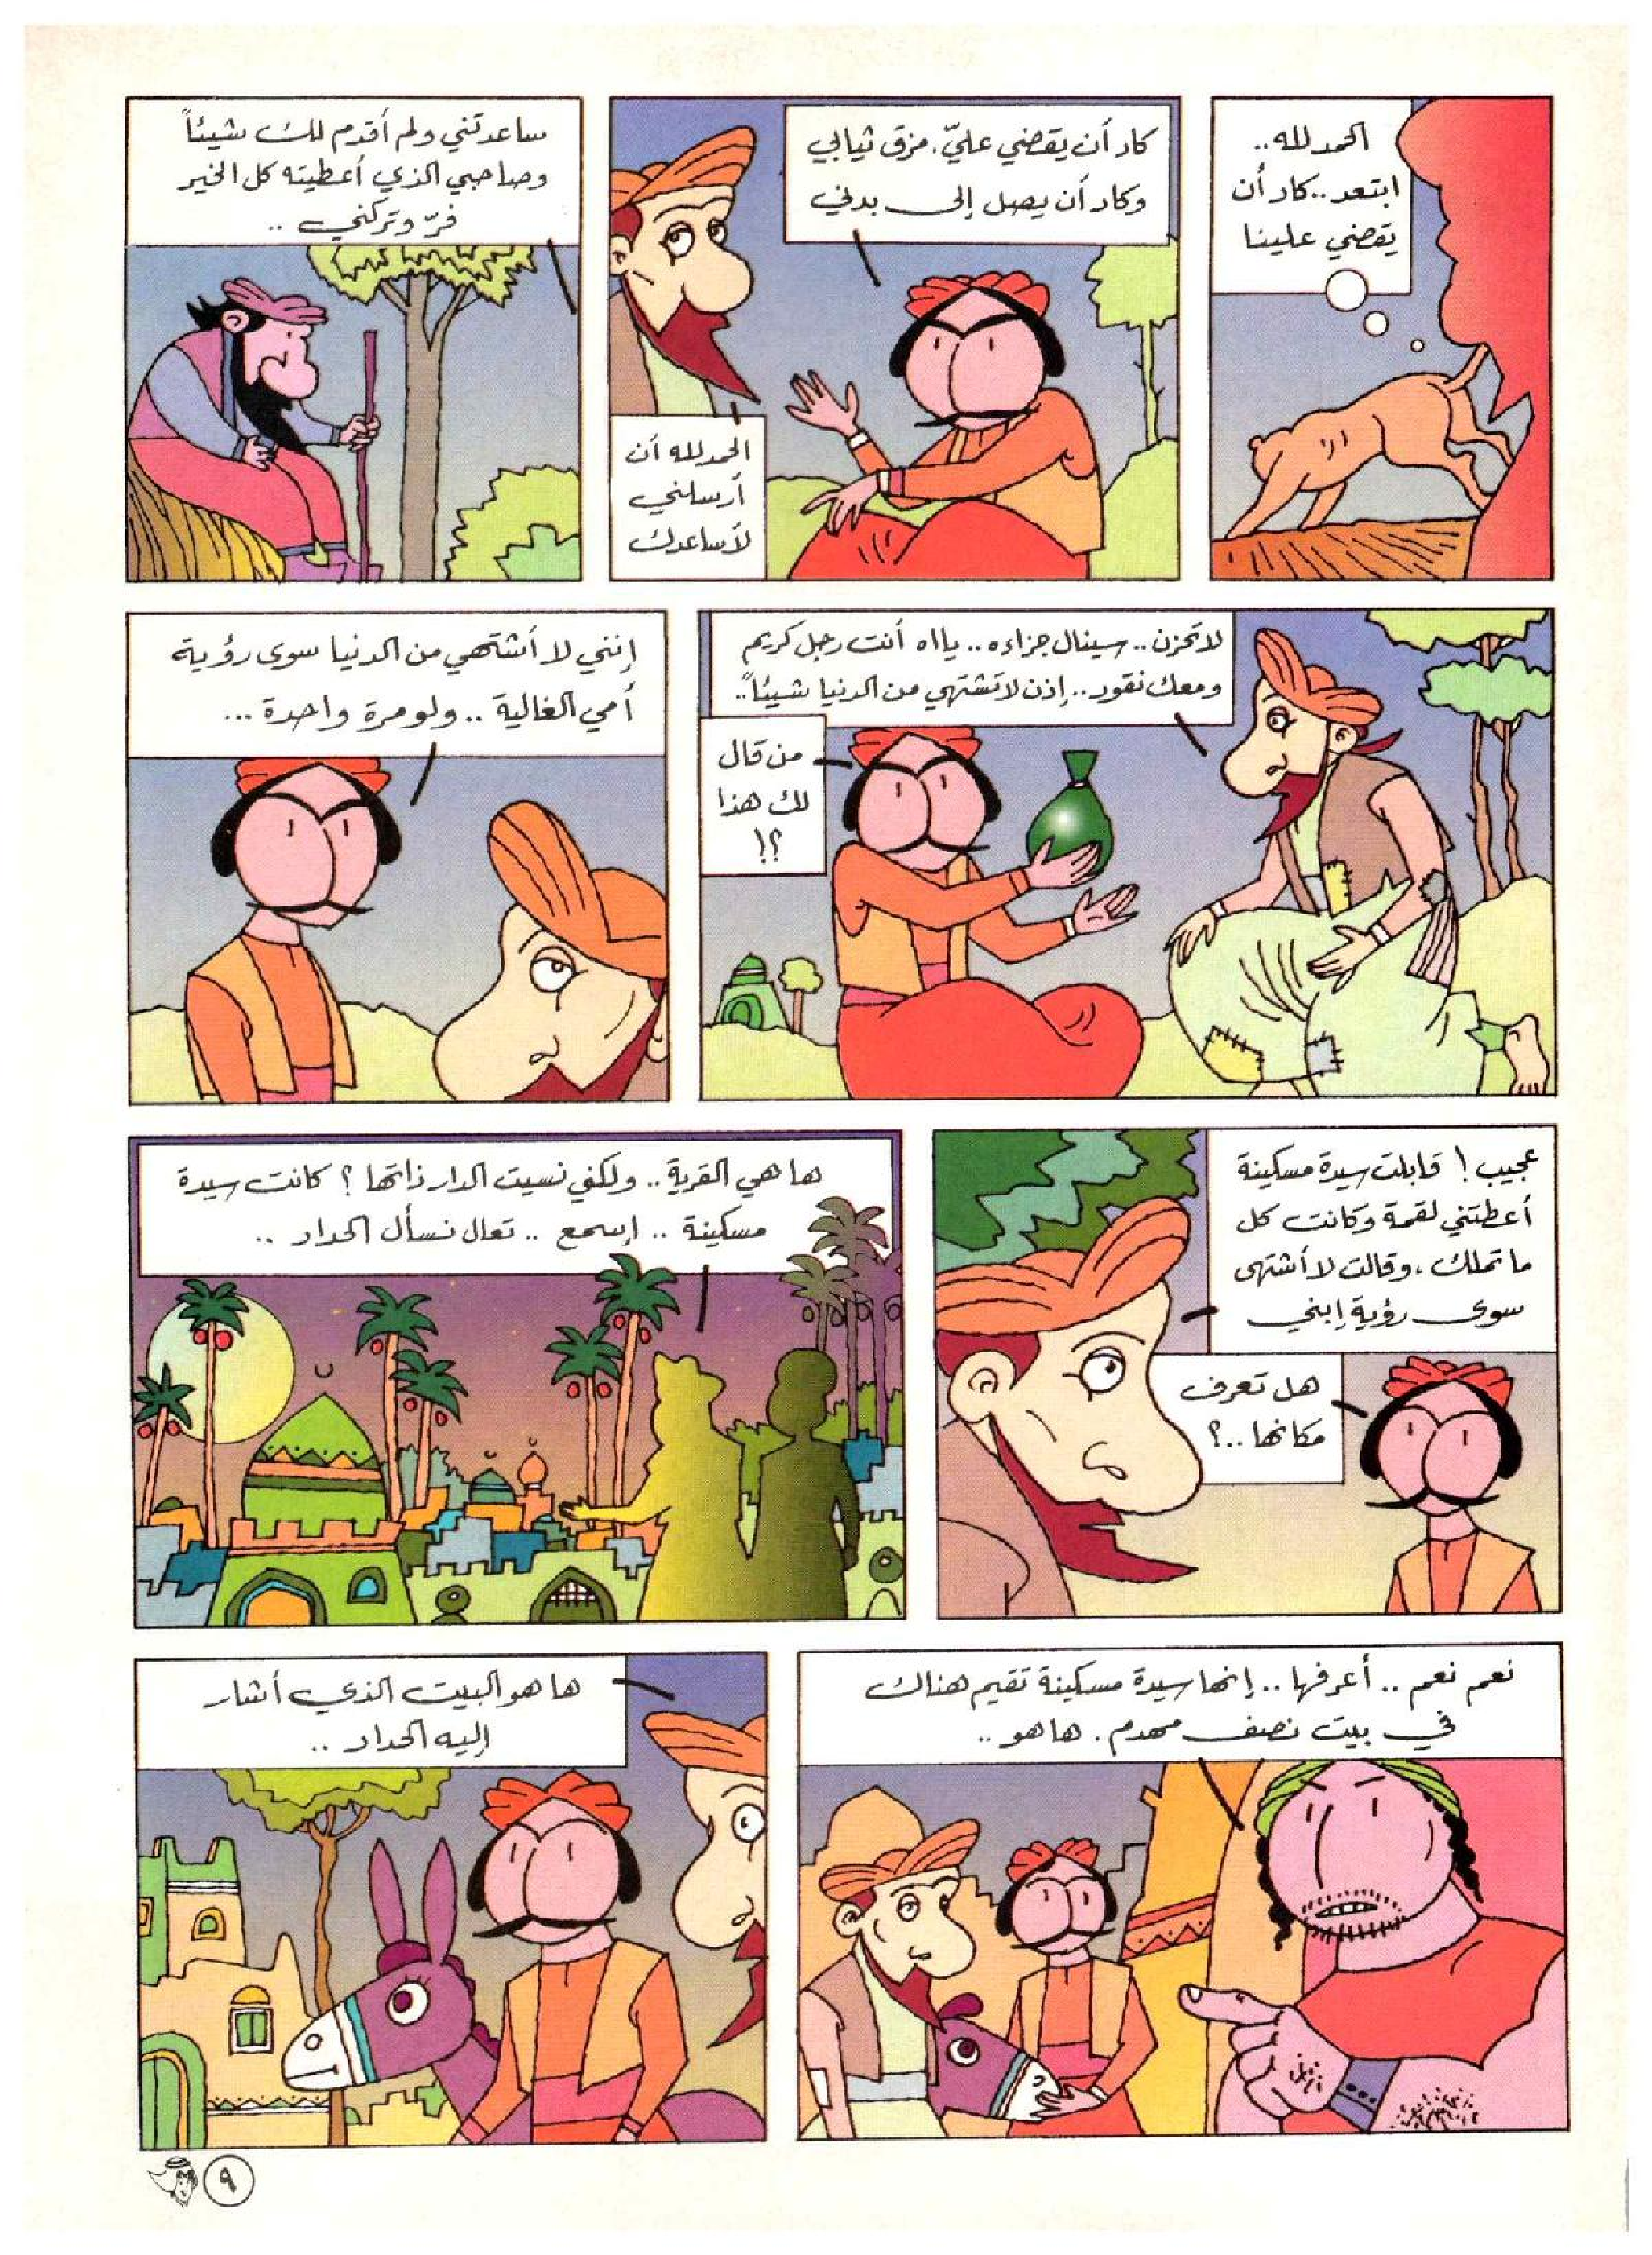 الحمد لله..
ابتعد.. كاد أن
يقضي علينا
كاد أن يقضي عليّ. مزق ثيابي
وكاد أن يصل إلى بدني
الحمد لله أن
أرسلني
لأساعدك
ساعدتني ولم أقدم لك شيئاً
وصاحبي الذي أعطيته كل الخير
فرّ وتركني ..
لا تحزن.. سينال جزاءه.. يااه أنت رجل كريم
ومعك نقود.. إذن لا تشتهي من الدنيا شيئاً..
من قال
لك هذا
؟!
إنني لا أشتهي من الدنيا سوى رؤية
أمي الغالية .. ولو مرة واحدة ...
عجيب! قابلت سيدة مسكينة
أعطتني لقمة وكانت كل
ما تملك، وقالت لا أشتهى
سوى رؤية إبني
هل تعرف
مكانها ..؟
ها هي القرية .. ولكني نسيت الدار ذاتها ؟ كانت سيدة
مسكينة .. إسمع .. تعال نسأل الحداد ..
نعم نعم .. أعرفها .. إنها سيدة مسكينة تقيم هناك
في بيت نصف مهدم . ها هو ..
ها هو البيت الذي أشار
إليه الحداد ..
٩